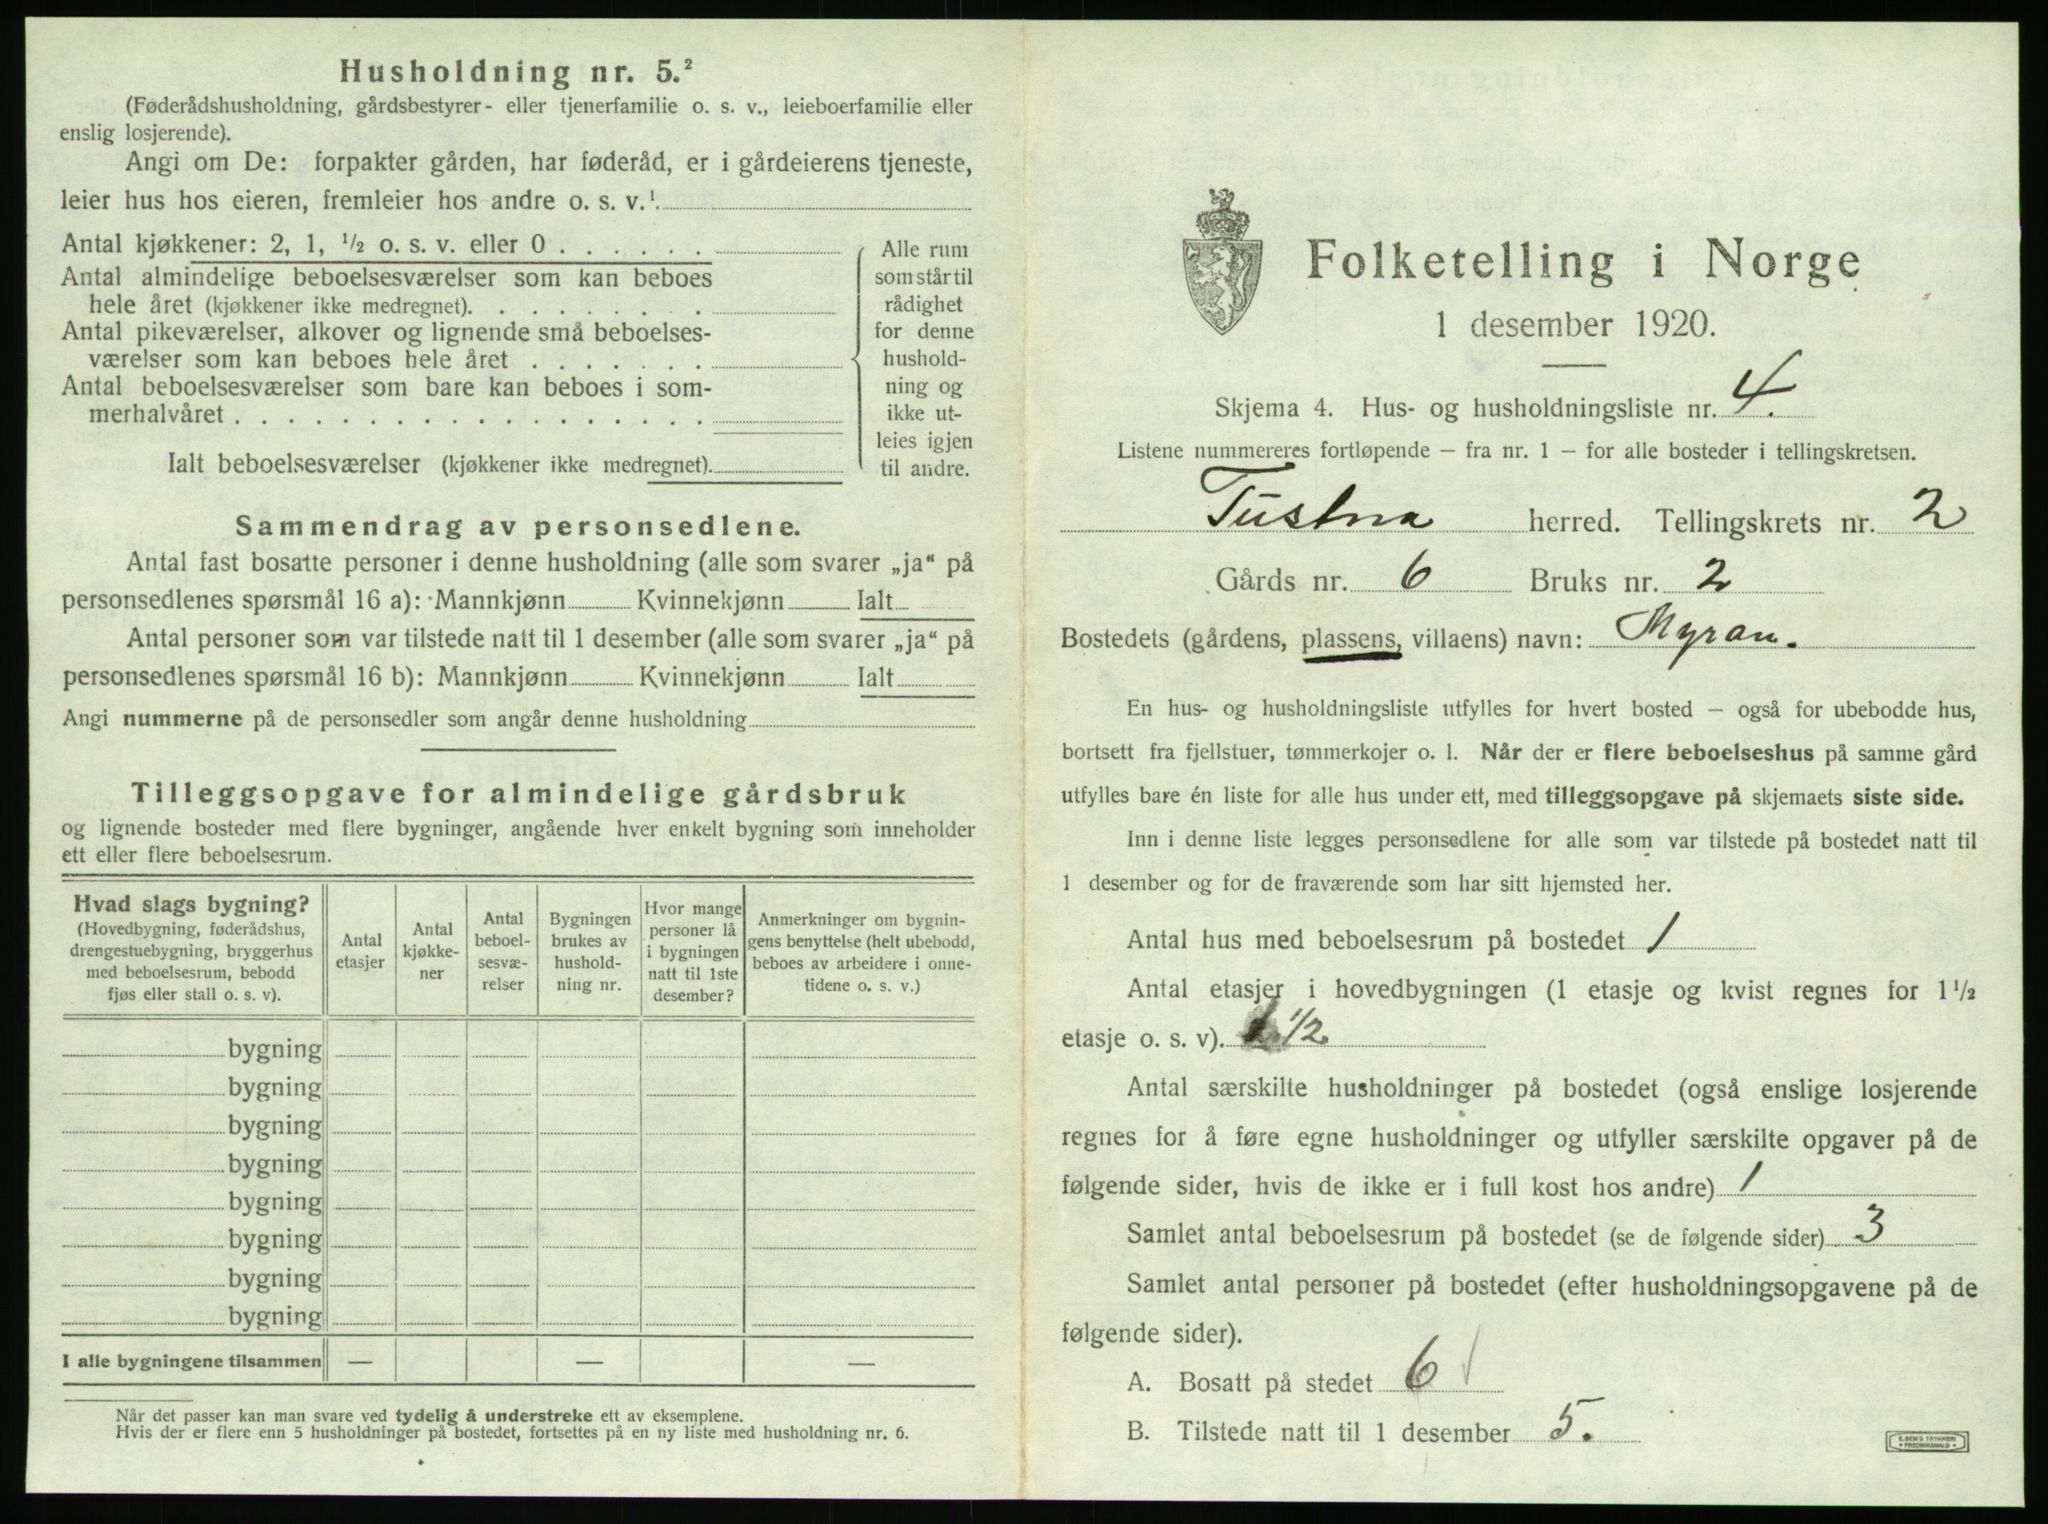 Husholdning nr. 5.²
(Føderådshusholdning, gårdsbestyrer- eller tjenerfamilie o. s. v., leieboerfamilie eller
enslig losjerende).
Angi om De: forpakter gården, har føderåd, er i gårdeierens tjeneste,
leier hus hos eieren, fremleier hos andre o. s. v.¹
Antal kjøkkener: 2, 1, ½ o. s. v. eller 0 . . . . . .
Antal almindelige beboelsesværelser som kan beboes
hele året (kjøkkener ikke medregnet). . . . . . . . .
Antal pikeværelser, alkover og lignende små beboelses-
værelser som kan beboes hele året . . . . . . .
Antal beboelsesværelser som bare kan beboes i som-
merhalvåret . . . . . . . . . . . . . . . . . .
Ialt beboelsesværelser (kjøkkener ikke medregnet).
Alle rum
som står til
rådighet
for denne
hushold-
ning og
ikke ut-
leies igjen
til andre.
Sammendrag av personsedlene.
Antal fast bosatte personer i denne husholdning (alle som svarer „ja“ på
personsedlenes spørsmål 16 a): Mannkjønn Kvinnekjønn Ialt
Antal personer som var tilstede natt til 1 desember (alle som svarer „ja“ på
personsedlenes spørsmål 16 b): Mannkjønn Kvinnekjønn Ialt
Angi nummerne på de personsedler som angår denne husholdning
Tilleggsopgave for almindelige gårdsbruk
og lignende bosteder med flere bygninger, angående hver enkelt bygning som inneholder
ett eller flere beboelsesrum.
Hvad slags bygning?
(Hovedbygning, føderådshus,
drengestuebygning, bryggerhus
med beboelsesrum, bebodd
fjøs eller stall o. s. v).
Antal
etasjer
Antal
kjøkke-
ner
Antal
beboel-
sesvæ-
relser
Bygningen
brukes av
hushold-
ning nr.
Hvor mange
personer lå
i bygningen
natt til 1ste
desember?
Anmerkninger om bygnin-
gens benyttelse (helt ubebodd,
beboes av arbeidere i onne-
tidene o. s. v.)
bygning
bygning
bygning
bygning
bygning
bygning
bygning
bygning
I alle bygningene tilsammen — — —
Når det passer kan man svare ved tydelig å understreke ett av eksemplene.
Hvis der er flere enn 5 husholdninger på bostedet, fortsettes på en ny liste med husholdning nr. 6.
Folketelling i Norge
1 desember 1920.
Skjema 4. Hus- og husholdningsliste nr. 4.
Listene nummereres fortløpende — fra nr. 1 — for alle bosteder i tellingskretsen.
Tustna herred. Tellingskrets nr. 2
Gårds nr. 6 Bruks nr. 2
Bostedets (gårdens, plassens, villaens) navn: Myran.
En hus- og husholdningsliste utfylles for hvert bosted — også for ubebodde hus,
bortsett fra fjellstuer, tømmerkojer o. l. Når der er flere beboelseshus på samme gård
utfylles bare én liste for alle hus under ett, med tilleggsopgave på skjemaets siste side.
Inn i denne liste legges personsedlene for alle som var tilstede på bostedet natt til
1 desember og for de fraværende som har sitt hjemsted her.
Antal hus med beboelsesrum på bostedet 1
Antal etasjer i hovedbygningen (1 etasje og kvist regnes for 1½
etasje o. s. v). 1 1/2
Antal særskilte husholdninger på bostedet (også enslige losjerende
regnes for å føre egne husholdninger og utfyller særskilte opgaver på de
følgende sider, hvis de ikke er i full kost hos andre) 1
Samlet antal beboelsesrum på bostedet (se de følgende sider) 3
Samlet antal personer på bostedet (efter husholdningsopgavene på de
følgende sider).
A. Bosatt på stedet 6
B. Tilstede natt til 1 desember 5.
E. SEM'S TRYKKERI
FREDRIKSHALD